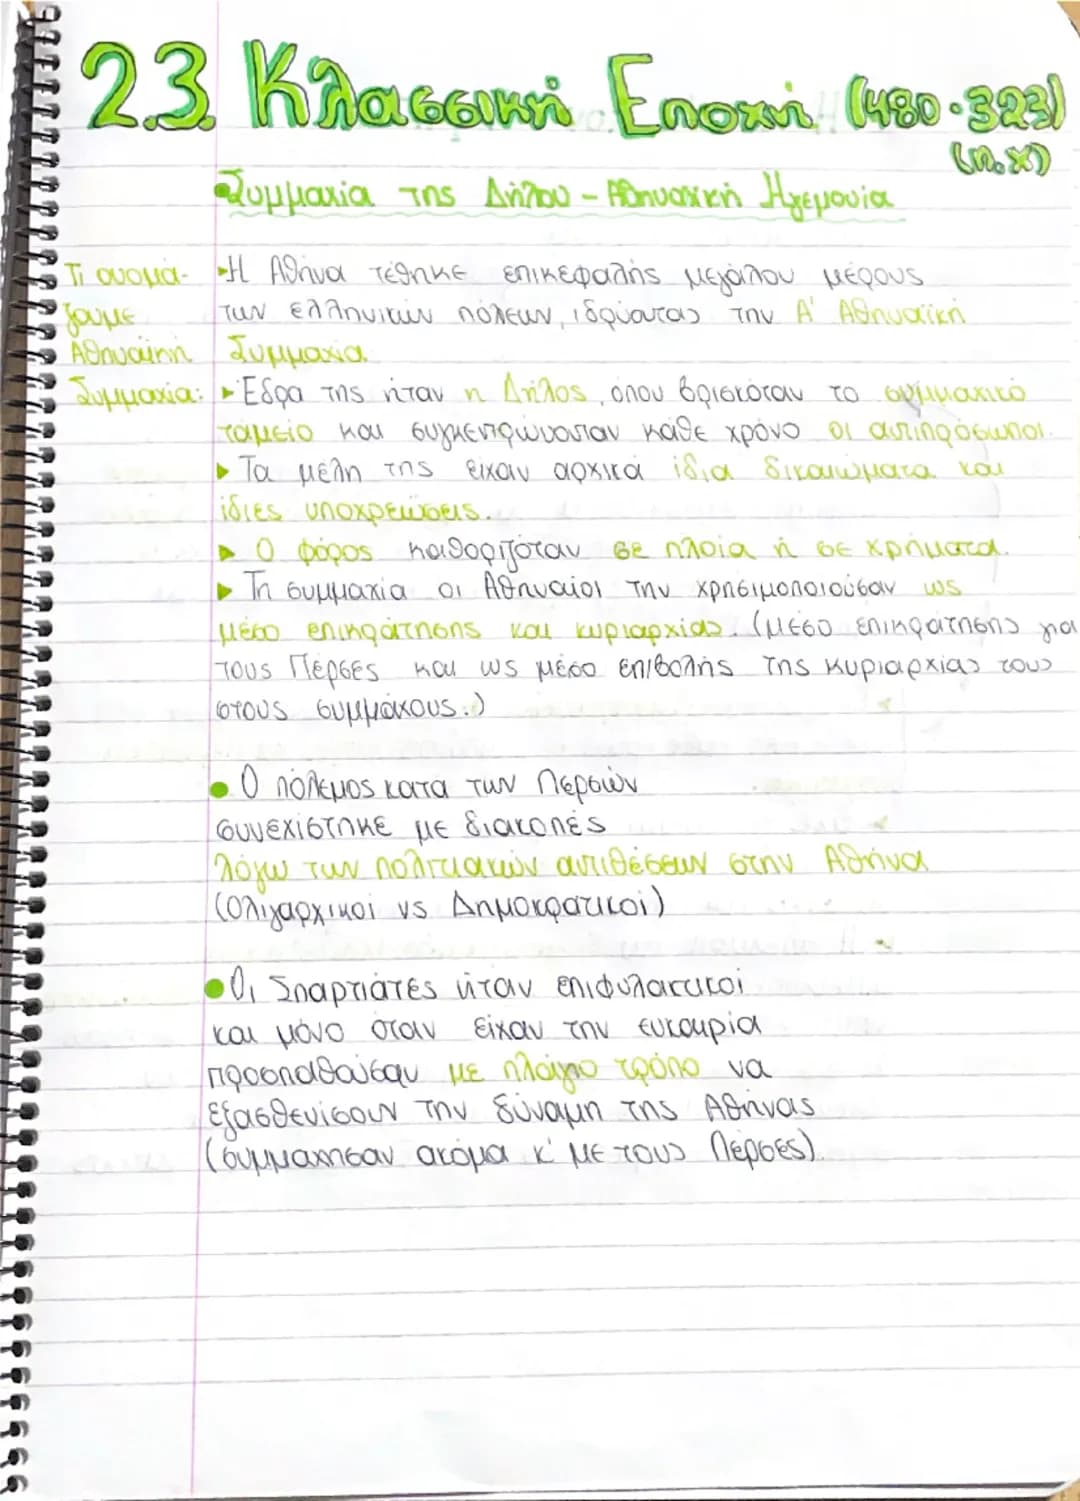 2.3. Κλασσική Εποχή (480-323)
(π.χ)
Συμμαχία της Δήλου - Αθηναϊκή Ηγεμονία
Τι ονομά-
ζουμε
Αθηναϊκή
Συμμαχία:
Η Αθήνα τέθηκε επικεφαλής μεγάλου μέρους
των ελληνικών πόλεων, ιδρύοντας την Α' Αθηναϊκή
Συμμαχία.
Έδρα της ήταν η Δήλος, όπου βρισκόταν το συμμαχικό
ταμείο και συγκεντρώνονταν κάθε χρόνο οι αντιπρόσωποι.
Τα μέλη της είχαν αρχικά ίδια δικαιώματα και
ίδιες υποχρεώσεις.
Ο φόρος καθοριζόταν σε πλοία ή σε χρήματα.
Τη συμμαχία οι Αθηναίοι την χρησιμοποιούσαν ως
μέσο επικράτησης και κυριαρχίας. (μέσο επικράτησης για
τους Πέρσες και ως μέσο επιβολής της κυριαρχίας τους
στους συμμάχους.)
Ο πόλεμος κατά των Περσών
συνεχίστηκε με διακοπές
λόγω των πολιτιακών αντιθέσεων στην Αθήνα
(Ολιγαρχικοί vs Δημοκρατικοί)
Οι Σπαρτιάτες ήταν επιφυλακτικοί
και μόνο όταν είχαν την ευκαιρία
προσπαθούσαν με πλάγιο τρόπο να
εξασθενίσουν την δύναμη της Αθήνας
(συμμάχησαν ακόμα κ' με τους Πέρσες).